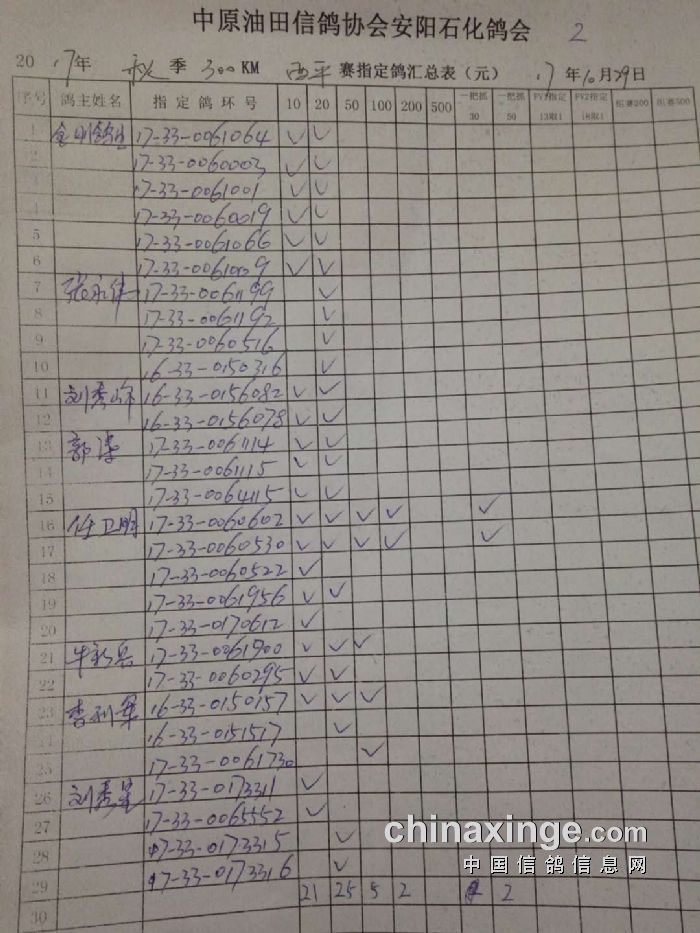 中原油田信鸽协会安阳石化鸽会 2
20 17年 秋 季 300KM 西平 赛指定鸽汇总表（元） 17 年10月29日
序号 鸽主姓名 指定鸽环号 10 20 50 100 200 500 一把抓30 一把抓50 FV1指定13取1 FV2指定18取1 组赛300 组赛500
1 17-33-0061064 ✓ ✓
2 17-33-0060003 ✓ ✓
3 17-33-0061001 ✓ ✓
4 17-33-0060019 ✓ ✓
5 17-33-0061066 ✓ ✓
6 17-33-0061009 ✓ ✓
7 张永伟 17-33-0061199 ✓
8 17-33-0061192 ✓
9 17-33-0060516 ✓
10 16-33-0150316 ✓
11 刘秀峰 16-33-0156082 ✓ ✓
12 16-33-0156078 ✓ ✓
13 郭涛 17-33-0061114 ✓ ✓
14 17-33-0061115 ✓ ✓
15 17-33-0064115 ✓ ✓
16 任卫明 17-33-0060602 ✓ ✓ ✓ ✓ ✓
17 17-33-0060530 ✓ ✓ ✓ ✓ ✓
18 17-33-0060522 ✓
19 17-33-0061956 ✓ ✓
20 17-33-0170612 ✓
21 牛新兵 17-33-0061900 ✓ ✓ ✓
22 17-33-0060295 ✓ ✓
23 李利军 16-33-0150157 ✓ ✓ ✓
24 16-33-0151517 ✓
25 17-33-0061730 ✓
26 刘秀星 17-33-0173311 ✓
27 17-33-0065552 ✓
28 17-33-0173315 ✓
29 17-33-0173316 ✓
30 21 25 5 2 2
chinaxinge.com
中国信鸽信息网